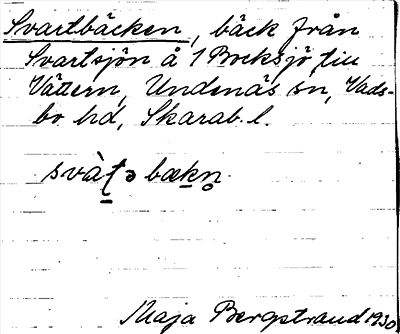 Svartbäcken, bäck från
Svartsjön å 1 Bocksjö till
Vättern, Undenäs sn, Vads-
bo hd, Skarab. l.
svàt̠ə bækn̥
Maja Bergstrand 1930